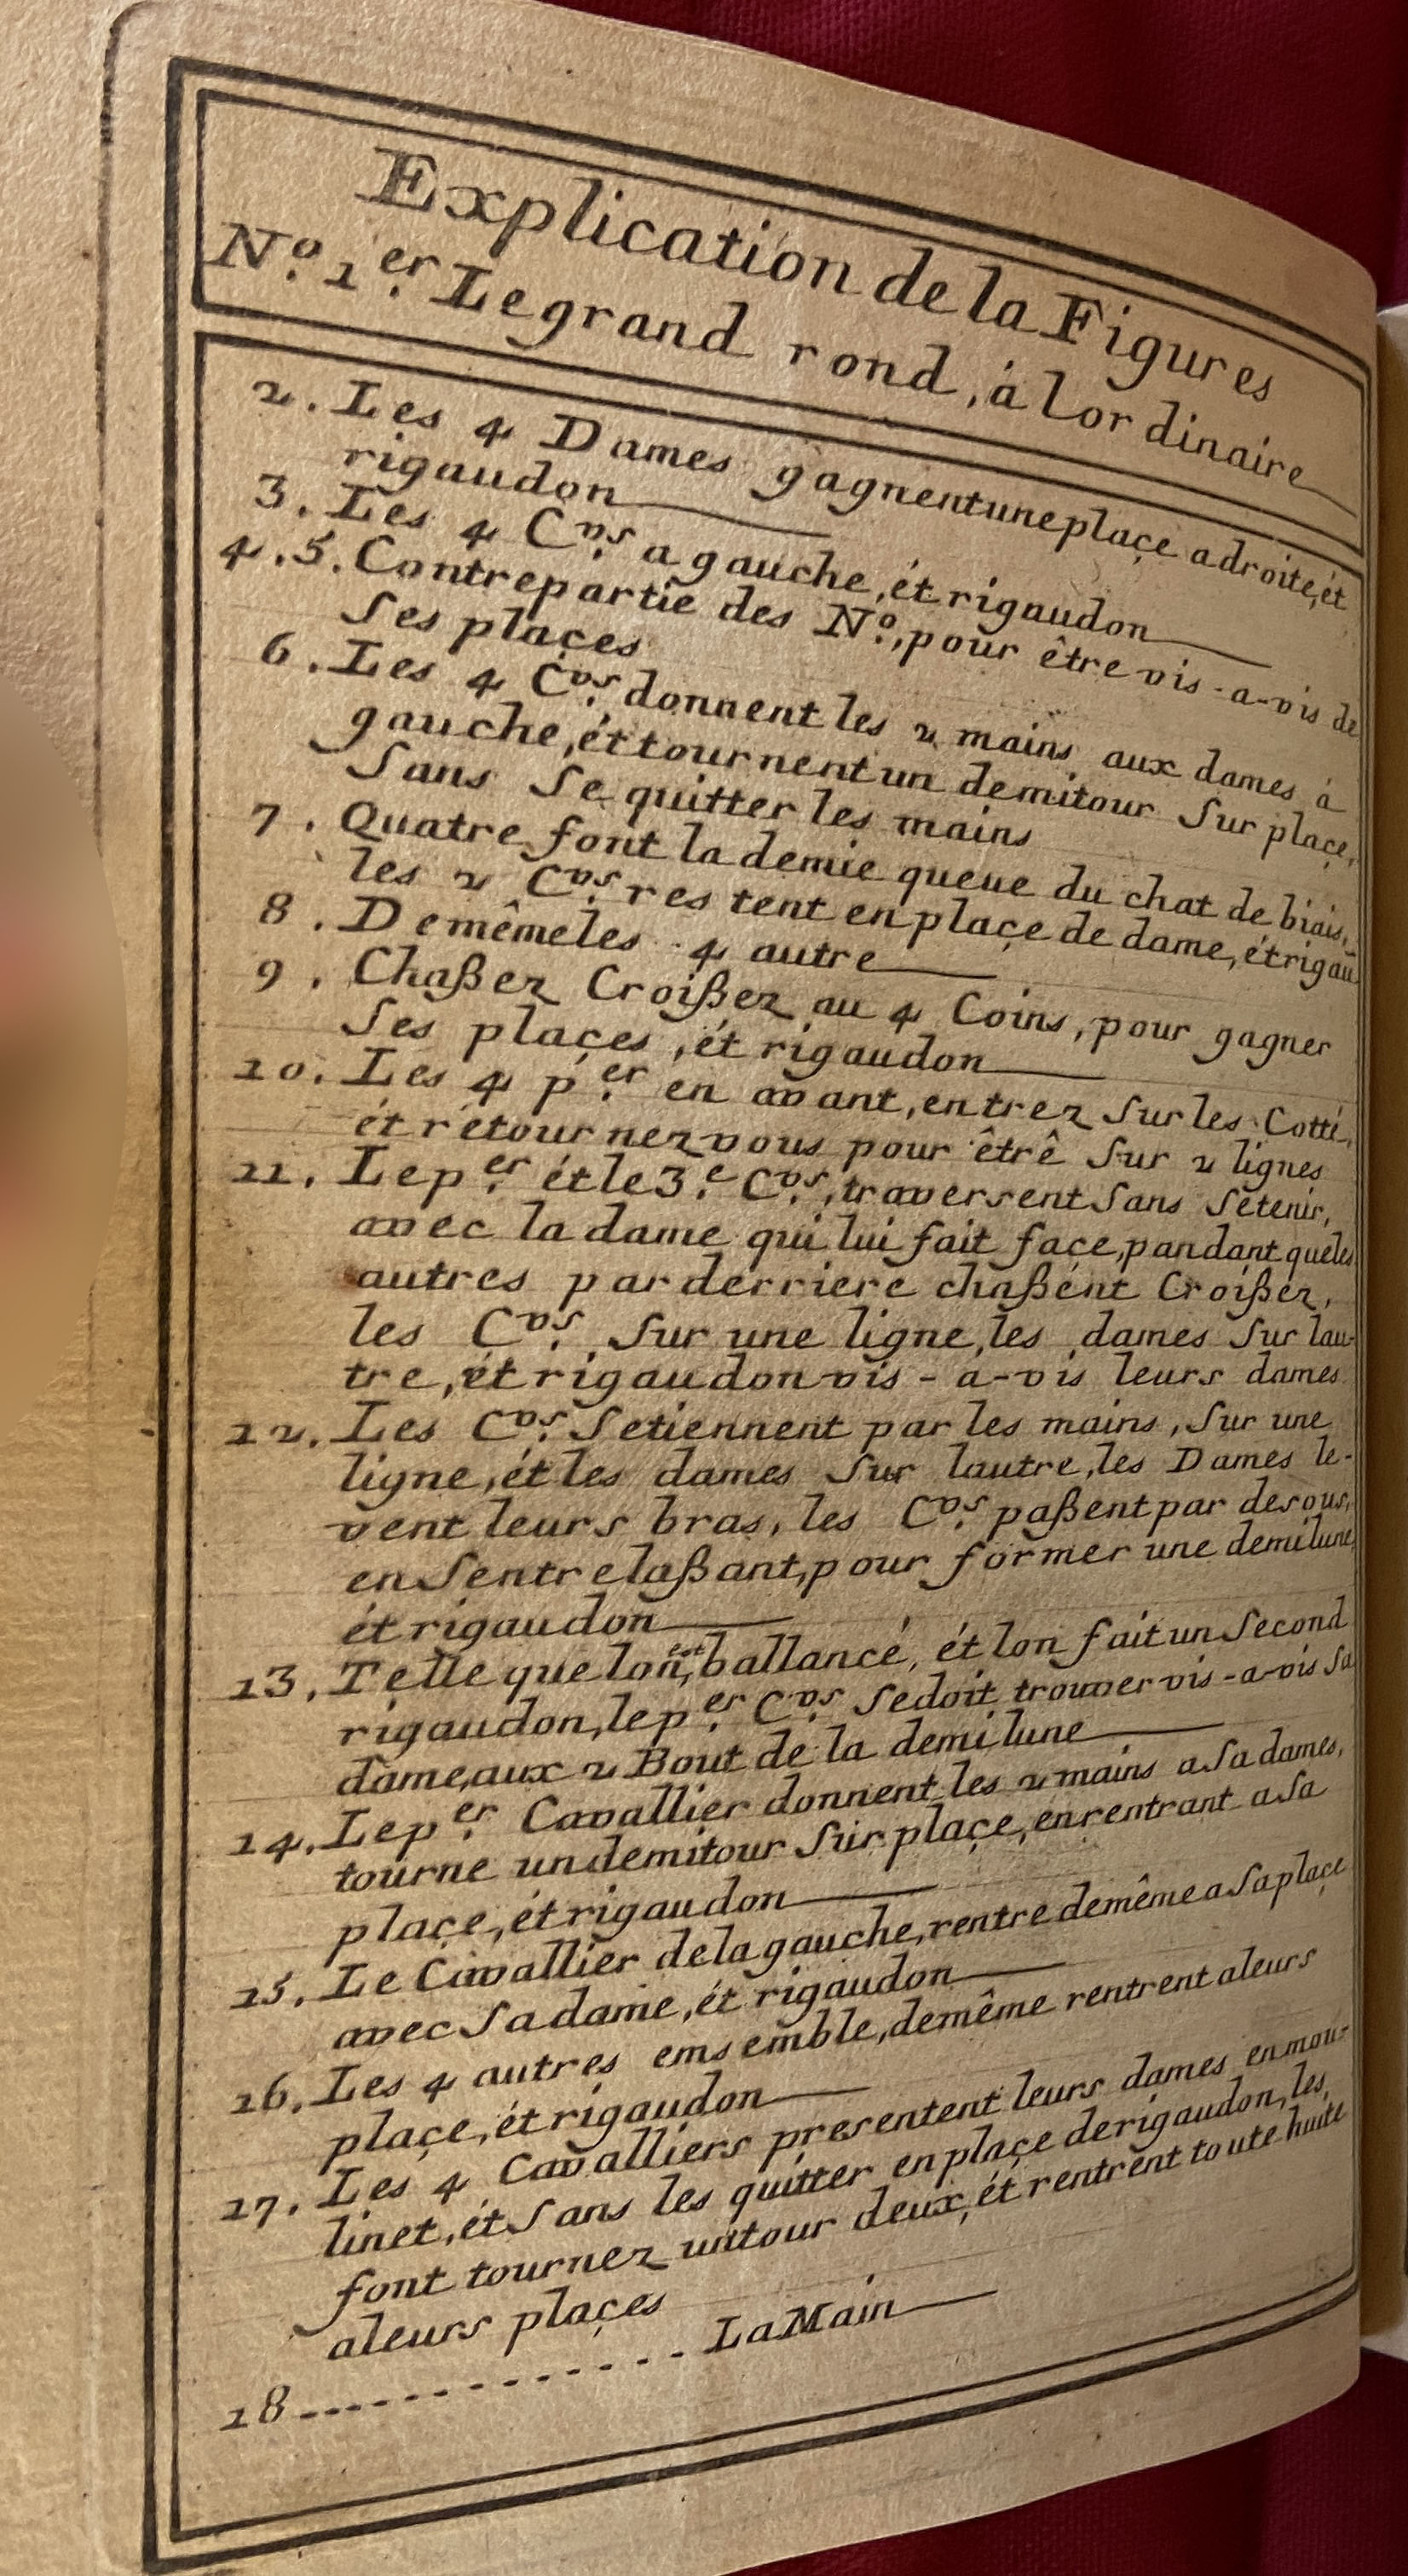 Explication de la Figures
N.º 1.er Le grand rond, à lordinaire
2. Les 4 Dames gagnent une plaçe a droite, ét
rigaudon
3. Les 4 C.vs a gauche, ét rigaudon
4. 5. Contrepartie des N.º, pour être vis-a-vis de
Ses plaçes
6. Les 4 C.vs donnent les 2 mains aux dames à
gauche, ét tournent un demitour Sur plaçe,
Sans Se quitter les mains
7. Quatre font la demie queue du chat de biais,
les 2 C.vs restent en plaçe de dame, ét rigau
8. De même les 4 autre
9. Chaßez Croißez au 4 Coins, pour gagner
Ses plaçes, ét rigaudon
10. Les 4 p.er en avant, entrez Sur les Cotté,
ét rétournez vous pour êtrê Sur 2 lignes
11. Le p.er ét le 3.e C.vs, traversent Sans Sétenir,
avec la dame qui lui fait façe, pandant que les
autres par derriere chaßént Croißéz,
les C.vs Sur une ligne, les dames Sur lau-
tre, ét rigaudon vis-a-vis leurs dames
12. Les C.vs Setiennent par les mains, Sur une
ligne, ét les dames Sur lautre, les Dames le-
vent leurs bras, les C.vs paßent par desous,
en Sentrelaßant, pour former une demi lune,
ét rigaudon
13. Telle que lon est, ballancé, ét lon fait un Second
rigaudon, le p.er C.vs Se doit trouver vis-a-vis Sa
dame, aux 2 Bout de la demi lune
14. Le p.er Cavallier donnent les 2 mains a Sa dames,
tourne un demitour Sur plaçe, en rentrant a Sa
plaçe, ét rigaudon
15. Le Cavallier de la gauche, rentre demême a Sa plaçe
avec Sa dame, ét rigaudon
16. Les 4 autres emsemble, demême rentrent aleurs
plaçe, ét rigaudon
17. Les 4 Cavalliers presentent leurs dames en mou-
linet, ét Sans les quitter en plaçe de rigaudon, les
font tournez un tour deux, ét rentrent toute huite
aleurs plaçes
18 - - - - - - - - - - - - La Main